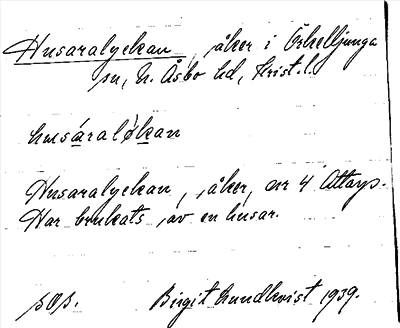 Husaralyckan, åker i Örkelljunga
sn, N. Åsbo hd, Krist. l.
husáraløkan
Husaralyckan, åker, nr 4 Åttarp.
Har brukats av en husar.
Birgit Lundkvist 1939.